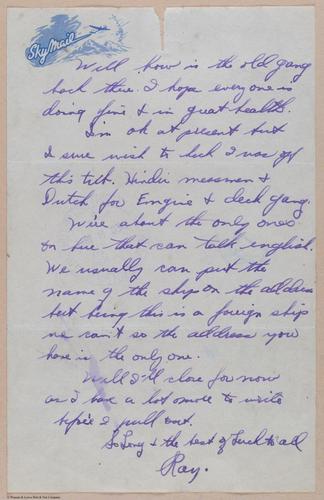 Sky Mail
Well how is the old gang
back there. I hope everyone is
doing fine & in great health.
I'm ok at present but
I sure wish to heck I was off
this tilt. Hindu messman &
Dutch for Engine & deck gang.
We're about the only ones
on here that can talk english.
We usually can put the
name of the ship on the address
but being this is a foreign ship
we can't so the address you
have is the only one.
Well I'll close for now
as I have a lot more to write
before I pull out.
So Long & the best of Luck to all
Ray.